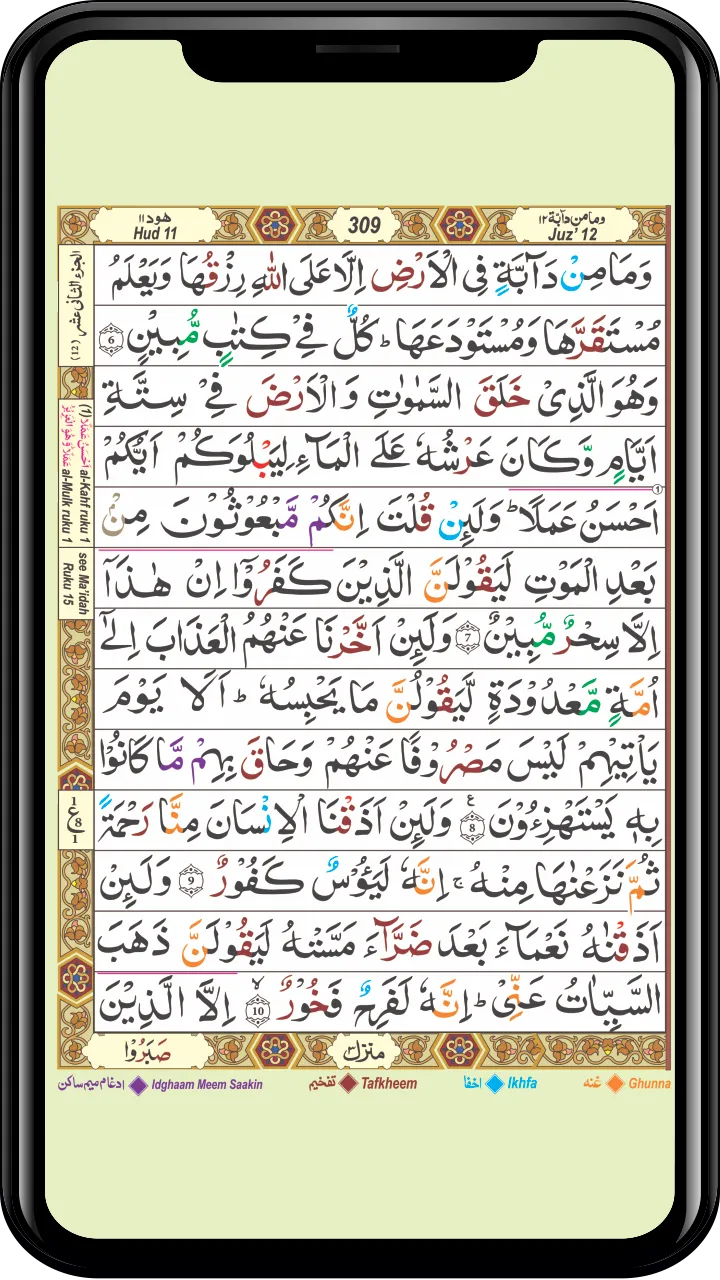 هود ١١
Hud 11
309
ومامن دآبة ١٢
Juz' 12
وَمَا مِنْ دَآبَّةٍ فِى الْاَرْضِ اِلَّا عَلَى اللّٰهِ رِزْقُهَا وَيَعْلَمُ
مُسْتَقَرَّهَا وَمُسْتَوْدَعَهَا ؕ كُلٌّ فِىْ كِتٰبٍ مُّبِيْنٍ 6
وَهُوَ الَّذِىْ خَلَقَ السَّمٰوٰتِ وَالْاَرْضَ فِىْ سِتَّةِ
اَيَّامٍ وَّكَانَ عَرْشُهٗ عَلَى الْمَآءِ لِيَبْلُوَكُمْ اَيُّكُمْ
اَحْسَنُ عَمَلًا ؕ وَلَئِنْ قُلْتَ اِنَّكُمْ مَّبْعُوْثُوْنَ مِنْۢ
بَعْدِ الْمَوْتِ لَيَقُوْلَنَّ الَّذِيْنَ كَفَرُوْۤا اِنْ هٰذَاۤ
اِلَّا سِحْرٌ مُّبِيْنٌ 7 وَلَئِنْ اَخَّرْنَا عَنْهُمُ الْعَذَابَ اِلٰٓى
اُمَّةٍ مَّعْدُوْدَةٍ لَّيَقُوْلُنَّ مَا يَحْبِسُهٗ ؕ اَلَا يَوْمَ
يَاْتِيْهِمْ لَيْسَ مَصْرُوْفًا عَنْهُمْ وَحَاقَ بِهِمْ مَّا كَانُوْا
بِهٖ يَسْتَهْزِءُوْنَ 8 وَلَئِنْ اَذَقْنَا الْاِنْسَانَ مِنَّا رَحْمَةً
ثُمَّ نَزَعْنٰهَا مِنْهُ ۚ اِنَّهٗ لَيَئُوْسٌ كَفُوْرٌ 9 وَلَئِنْ
اَذَقْنٰهُ نَعْمَآءَ بَعْدَ ضَرَّآءَ مَسَّتْهُ لَيَقُوْلَنَّ ذَهَبَ
السَّيِّاٰتُ عَنِّىْ ؕ اِنَّهٗ لَفَرِحٌ فَخُوْرٌ 10 اِلَّا الَّذِيْنَ
الجزء الثانی عشر (12)
(1) اَحْسَنُ عَمَلًا al-Kahf ruku 1
al-Mulk ruku 1
see Ma'idah
Ruku 15
1
ع
8
1
منزل ٣
صَبَرُوْا
ادغام میم ساکن Idghaam Meem Saakin
تفخیم Tafkheem
اخفا Ikhfa
غنه Ghunna